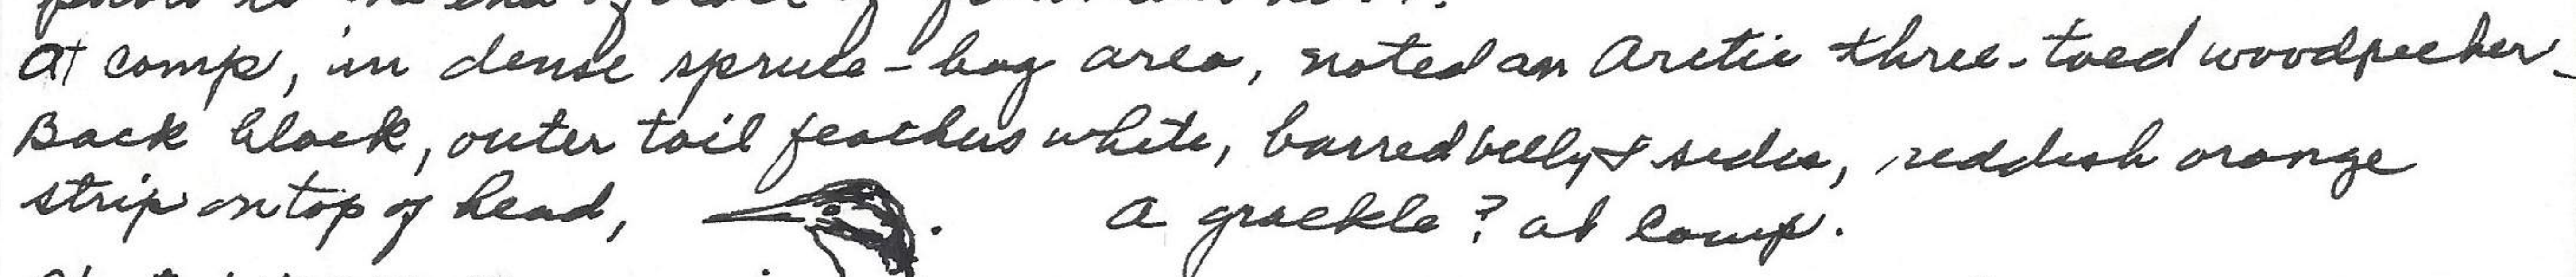 At camp, in dense spruce-bog area, noted an Arctic three-toed woodpecker-
Back black, outer tail feathers white, barred belly & sides, reddish orange
strip on top of head, . A grackle? at camp.